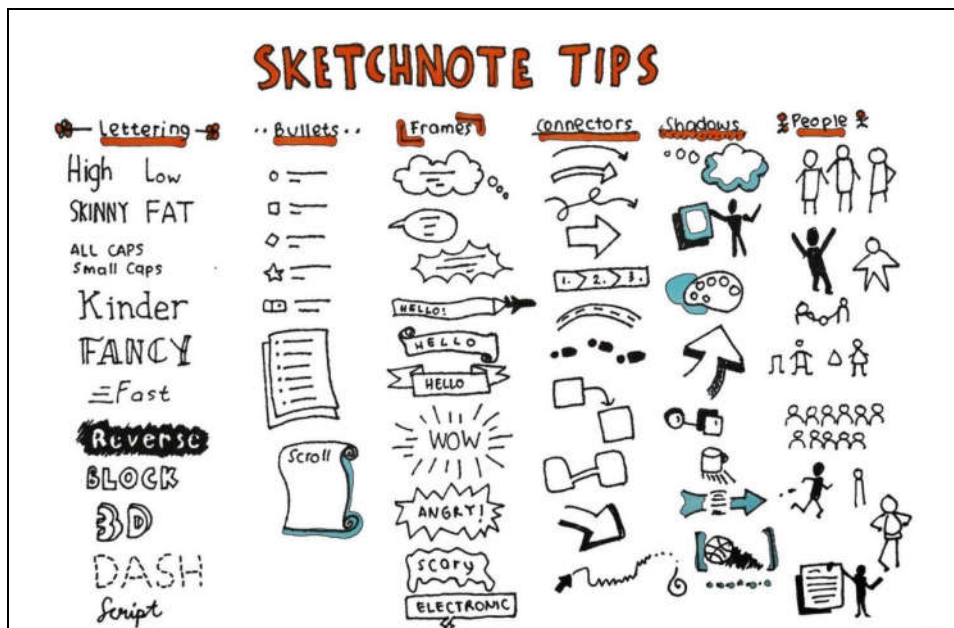 SKETCHNOTE TIPS
Lettering
High Low
SKINNY FAT
ALL CAPS
Small Caps
Kinder
FANCY
Fast
Reverse
BLOCK
3D
DASH
Script
Bullets
Scroll
Frames
HELLO!
HELLO
HELLO
WOW
ANGRY!
Scary
ELECTRONIC
Connectors
1. 2. 3.
Shadows
People